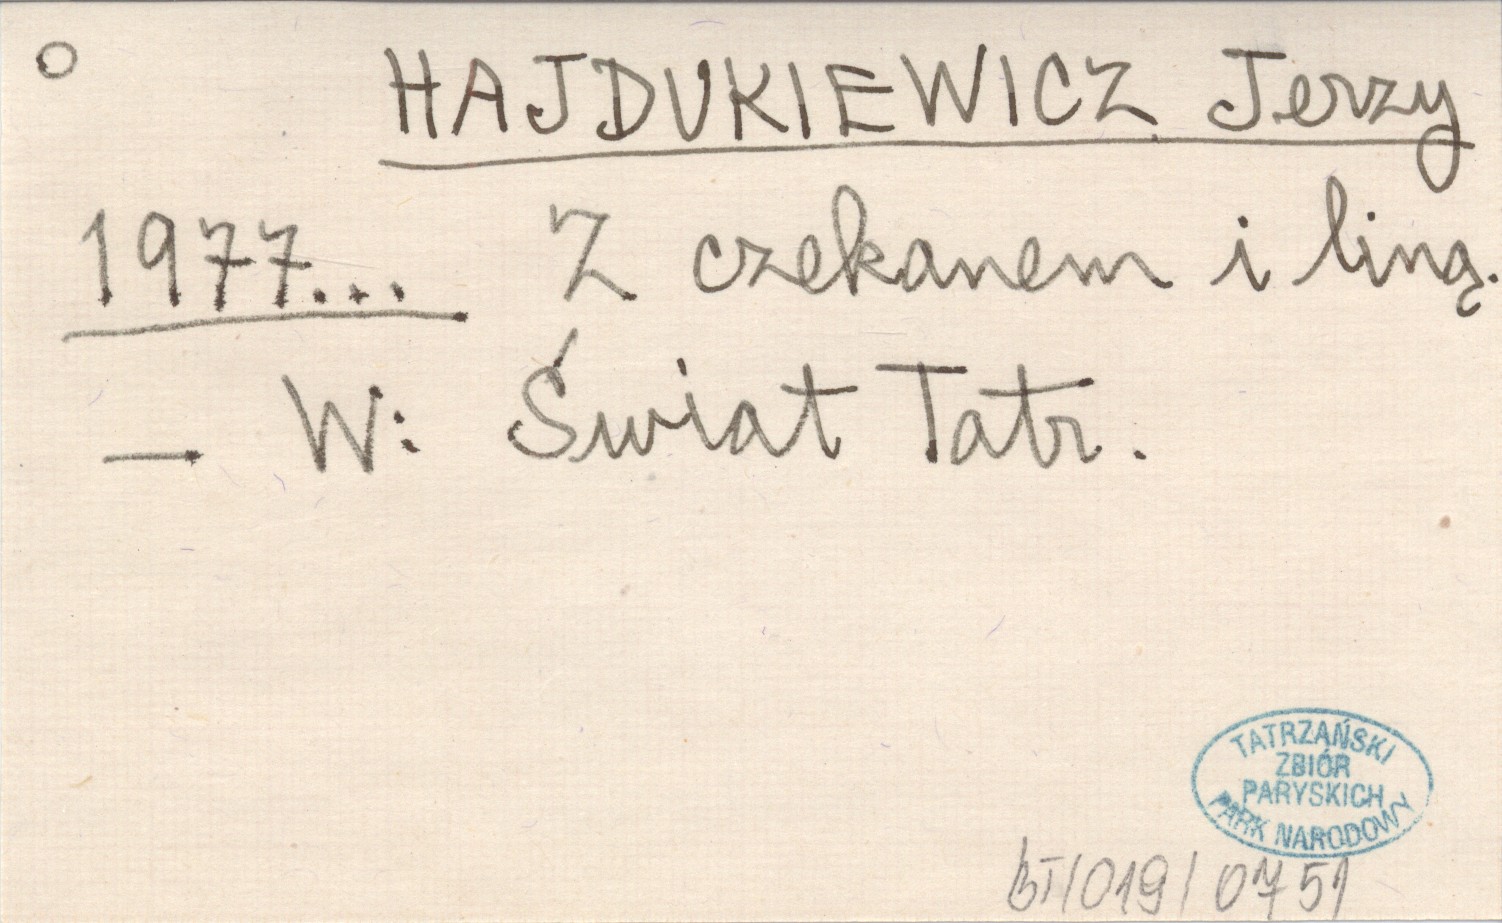 HAJDUKIEWICZ Jerzy
1977... Z czekanem i liną.
— W: Świat Tatr.
TATRZAŃSKI
ZBIÓR
PARYSKICH
PARK NARODOWY
BT/019/0751